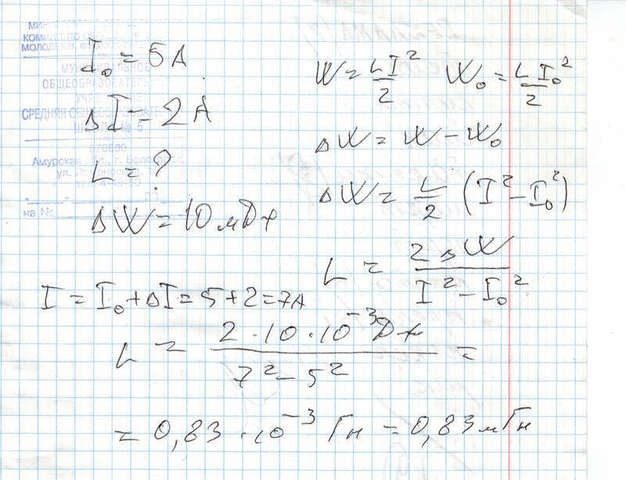 I₀ = 5А
ΔI = 2А
L = ?
ΔW = 10 мДж
W = LI²/2 W₀ = LI₀²/2
ΔW = W − W₀
ΔW = L/2 (I² − I₀²)
L = 2ΔW / I² − I₀²
I = I₀ + ΔI = 5 + 2 = 7А
L = 2 · 10 · 10⁻³ Дж / 7² − 5² =
= 0,83 · 10⁻³ Гн = 0,83 мГн